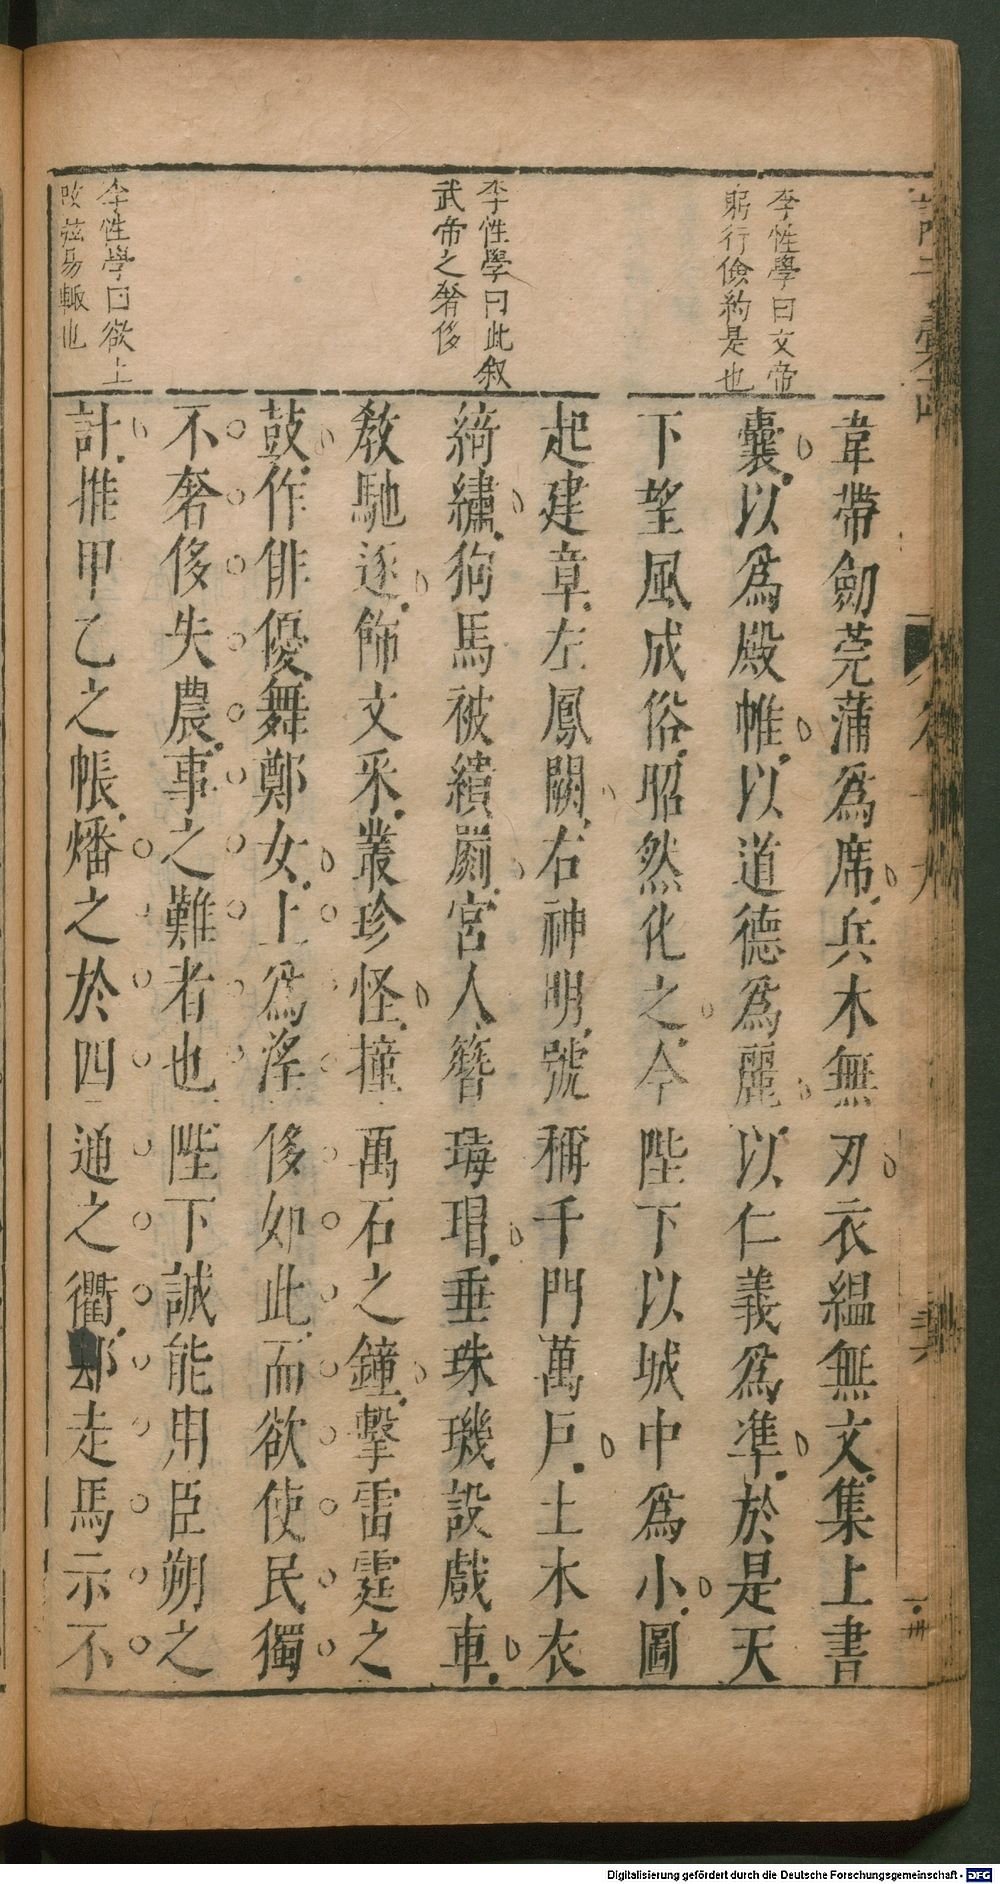 李性學曰文帝
躬行儉約是也
李性學曰此叙
武帝之奢侈
李性學曰欲上
改茲易轍也
韋帶劒莞蒲爲席兵木無刃衣緼無文集上書
囊以爲殿帷以道德爲麗以仁義爲凖於是天
下望風成俗昭然化之今陛下以城中爲小圖
起建章左鳳闕右神明號稱千門萬戶土木衣
綺繡狗馬被繢罽宮人簪瑇瑁垂珠璣設戲車
敎馳逐飾文釆叢珍怪撞萬石之鐘擊雷霆之
鼓作俳優舞鄭女上爲淫侈如此而欲使民獨
不奢侈失農事之難者也陛下誠能用臣朔之
計推甲乙之帳燔之於四通之衢却走馬示不
Digitalisierung gefördert durch die Deutsche Forschungsgemeinschaft - DFG